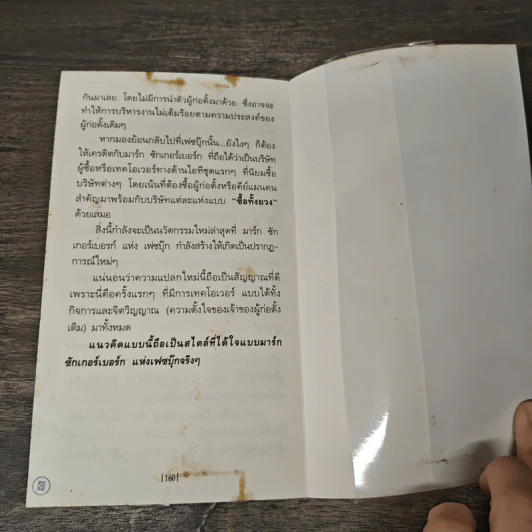 กันมาเลย โดยไม่มีการนำตัวผู้ก่อตั้งมาด้วย ซึ่งอาจจะ
ทำให้การบริหารงานไม่เต็มร้อยตามความประสงค์ของ
ผู้ก่อตั้งเดิมๆ
หากมองย้อนกลับไปที่เฟซบุ๊กนั้น...ยังไงๆ ก็ต้อง
ให้เครดิตกับมาร์ก ซักเกอร์เบอร์ก ที่ถือได้ว่าเป็นบริษัท
ผู้ซื้อหรือเทคโอเวอร์ทางด้านไอทีชุดแรกๆ ที่นิยมซื้อ
บริษัทต่างๆ โดยเน้นที่ต้องซื้อผู้ก่อตั้งหรือคีย์แมนคน
สำคัญมาพร้อมกับบริษัทแต่ละแห่งแบบ "ซื้อทั้งยวง"
ด้วยเสมอ
สิ่งนี้กำลังจะเป็นนวัตกรรมใหม่ล่าสุดที่ มาร์ก ซัก
เกอร์เบอรก์ แห่ง เฟซบุ๊ก กำลังสร้างให้เกิดเป็นปรากฏ-
การณ์ใหม่ๆ
แน่นอนว่าความแปลกใหม่นี้ถือเป็นสัญญาณที่ดี
เพราะนี่คือครั้งแรกๆ ที่มีการเทคโอเวอร์ แบบได้ทั้ง
กิจการและจิตวิญญาณ (ความตั้งใจของเจ้าของผู้ก่อตั้ง
เดิม) มาทั้งหมด
แนวคิดแบบนี้ถือเป็นสไตล์ที่ได้ใจแบบมาร์ก
ซักเกอร์เบอร์ก แห่งเฟซบุ๊กจริงๆ
|160|